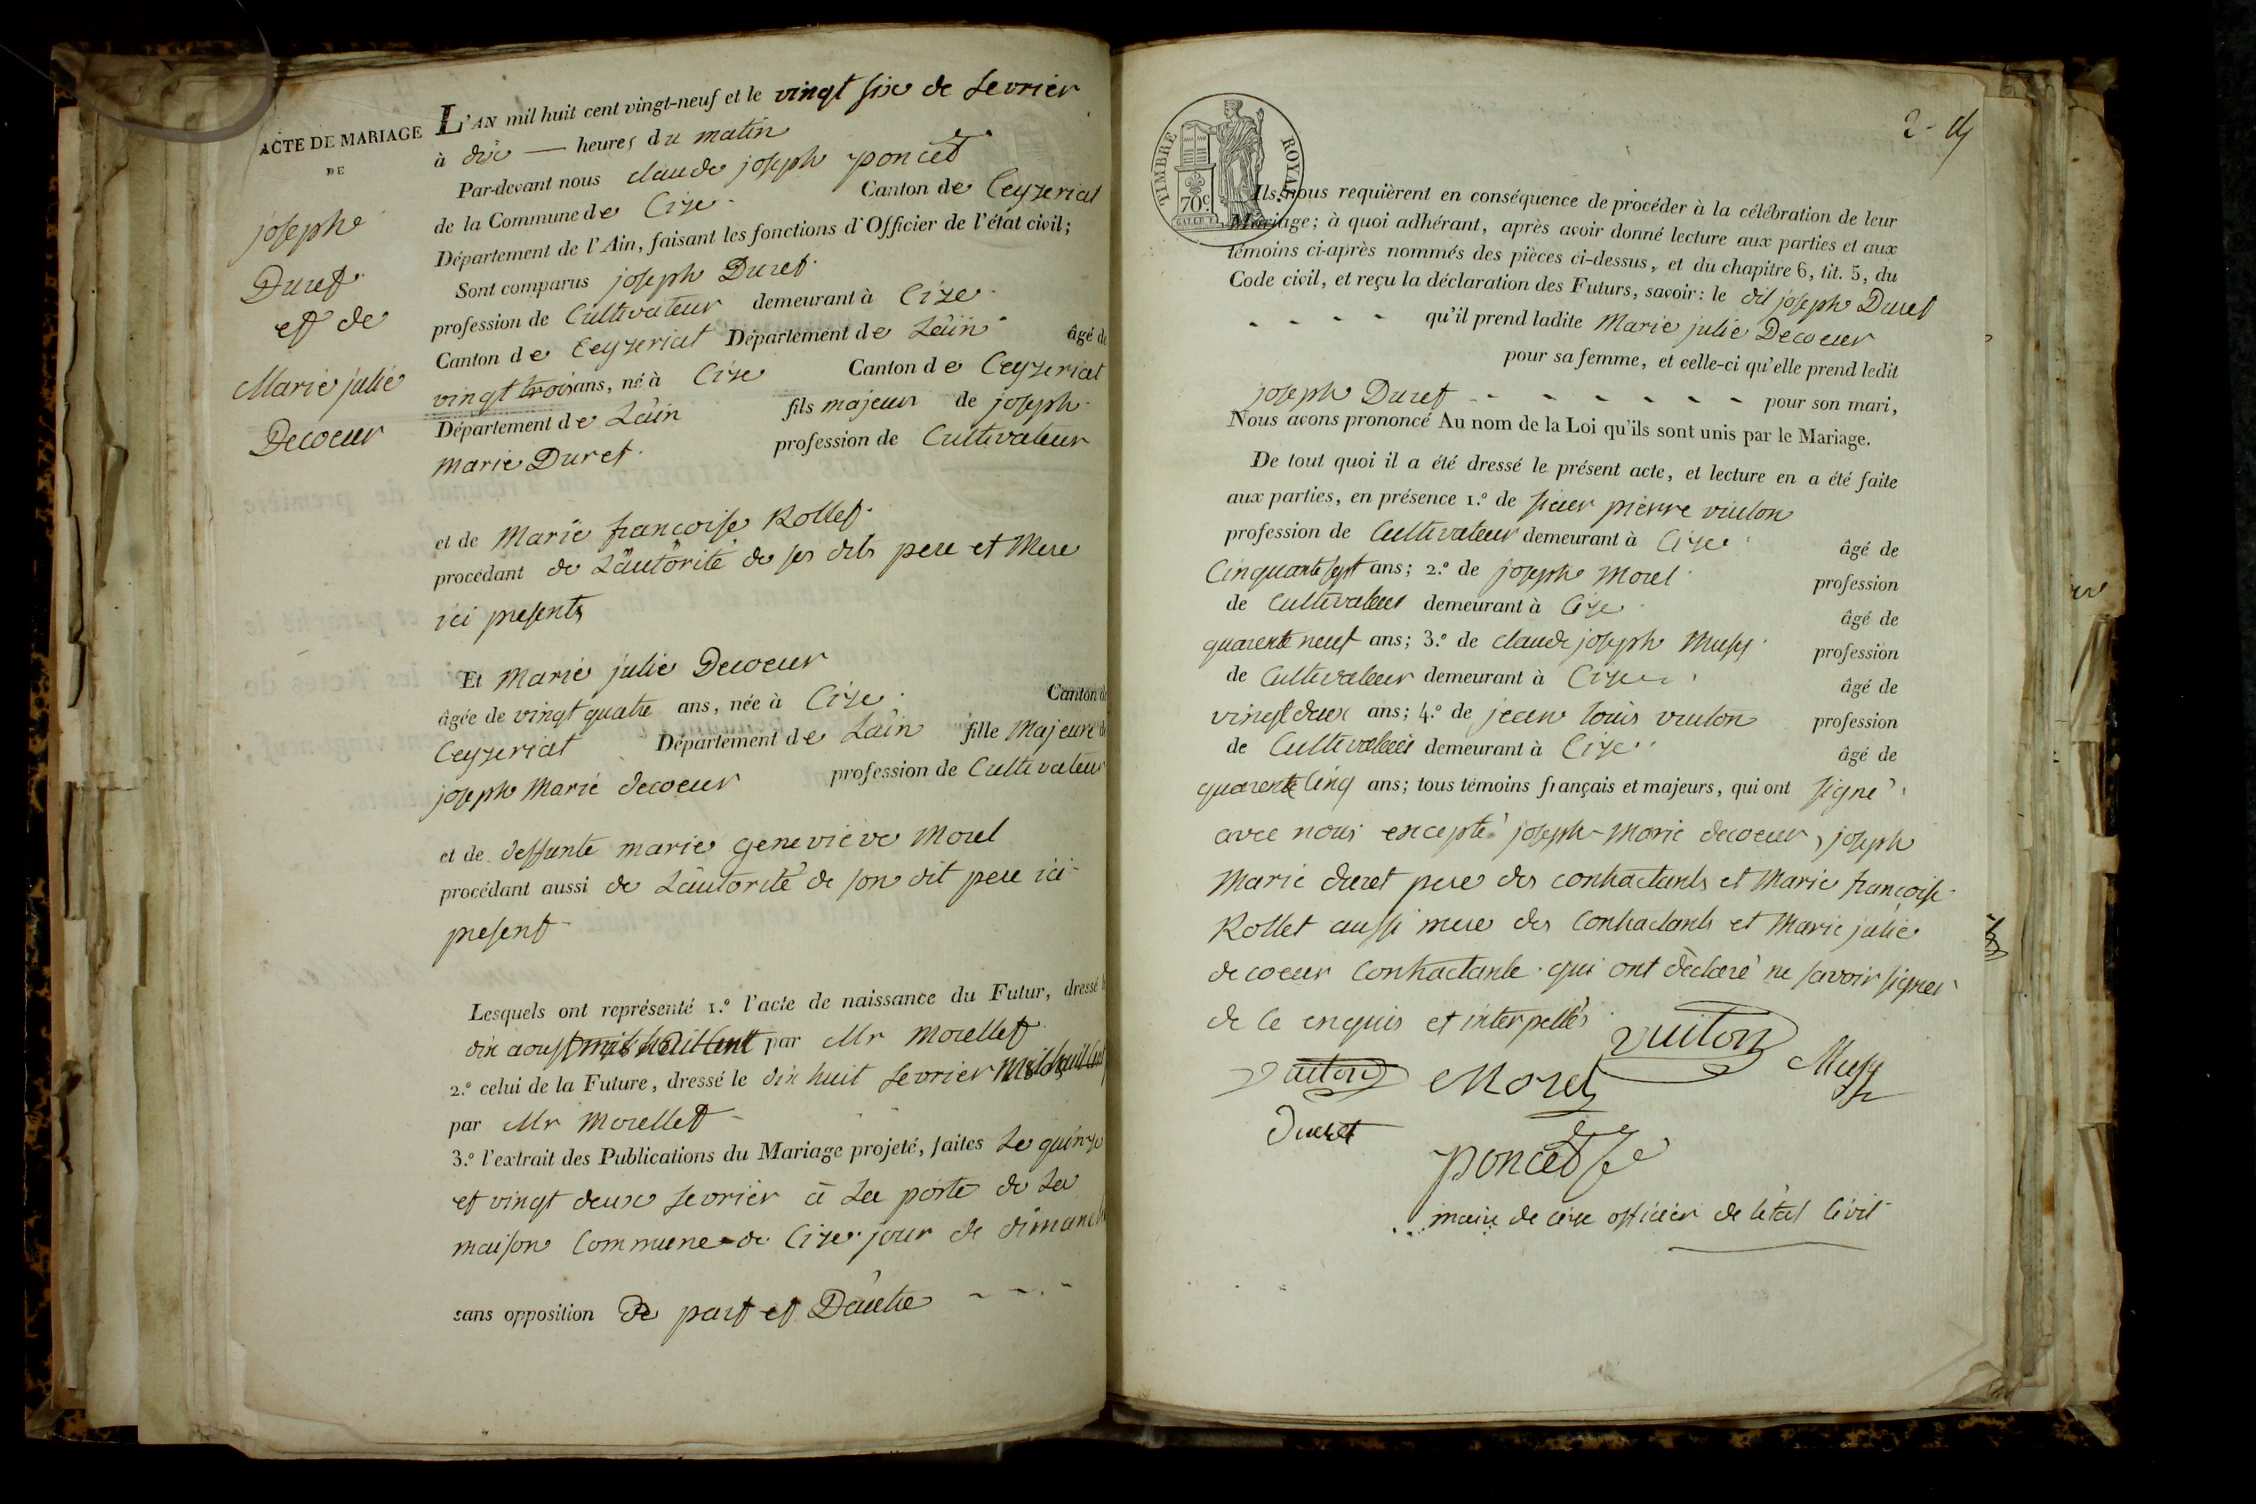 ACTE DE MARIAGE
DE
joseph
Duret
et de
Marie julie
Decoeur
L'AN mil huit cent vingt-neuf et le vingt six de fevrier
à dix — heures du matin
Par-devant nous claude joseph poncet
de la Commune de Cize Canton de Ceyzeriat
Département de l'Ain, faisant les fonctions d'Officier de l'état civil;
Sont comparus joseph Duret
profession de Cultivateur demeurant à Cize
Canton de Ceyzeriat Département de Lain âgé de
vingt trois ans, né à Cize Canton de Ceyzeriat
Département de Lain fils majeur de joseph
marie Duret profession de Cultivateur
et de Marie françoise Rollet
procédant de Lautorité de ses dits pere et Mere
ici presents
Et Marie julie Decoeur
âgée de vingt quatre ans, née à Cize Canton de
Ceyzeriat Département de Lain fille Majeure de
joseph Marie decoeur profession de Cultivateur
et de deffunte marie genevieve Morel
procédant aussi de Lautorité de son dit pere ici
present
Lesquels ont représenté 1.º l'acte de naissance du Futur, dressé le
dix aoust mil huit cent par Mr Morellet
2.º celui de la Future, dressé le dix huit fevrier mil huit cent
par Mr Morellet
3.º l'extrait des Publications du Mariage projeté, faites Le quinze
et vingt deux fevrier a La porte de La
maison Commune de Cize jour de dimanche
sans opposition De part et Dautre
TIMBRE ROYAL
70 c.
Ils nous requièrent en conséquence de procéder à la célébration de leur
Mariage; à quoi adhérant, après avoir donné lecture aux parties et aux
témoins ci-après nommés des pièces ci-dessus, et du chapitre 6, tit. 5, du
Code civil, et reçu la déclaration des Futurs, savoir: le dit joseph Duret
- - - - qu'il prend ladite Marie julie Decoeur
pour sa femme, et celle-ci qu'elle prend ledit
joseph Duret - - - - - - - pour son mari,
Nous avons prononcé Au nom de la Loi qu'ils sont unis par le Mariage.
De tout quoi il a été dressé le présent acte, et lecture en a été faite
aux parties, en présence 1.º de sieur pierre vuiton
profession de Cultivateur demeurant à Cize âgé de
Cinquante sept ans; 2.º de joseph Morel profession
de Cultivateur demeurant à Cize âgé de
quarente neuf ans; 3.º de claude joseph Mussy profession
de Cultivateur demeurant à Cize âgé de
vingt deux ans; 4.º de jean louis vuiton profession
de Cultivateur demeurant à Cize âgé de
quarente Cinq ans; tous témoins français et majeurs, qui ont signé
avec nous excepté joseph-Marie decoeur, joseph
Marie duret pere des contractants et Marie françoise
Rollet aussi mere des Contractants et Marie julie
decoeur Contractante qui ont déclaré ne savoir signer
de ce enquis et interpellés
vuiton
vuiton Morel Mussy
Duret
poncet
maire de cize officier de létat Civil